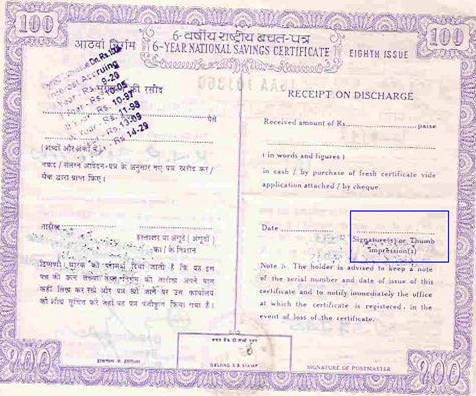 100
100
6-वर्षीय राष्ट्रीय बचत-पत्र
6-YEAR NATIONAL SAVINGS CERTIFICATE
आठवां निर्गम
EIGHTH ISSUE
Accruing
9-20
10-05
Rs. 10-97
Rs. 11-98
Rs. 13-09
Rs. 14-29
की रसीद
पैसे
(शब्दों और अंकों में)
नकद / संलग्न आवेदन-पत्र के अनुसार नए पत्र खरीद कर /
चैक द्वारा प्राप्त किए।
तारीख
हस्ताक्षर या अंगूठे (अंगूठों)
का / के निशान
टिप्पणी: धारक को परामर्श दिया जाता है कि वह इस
को शीघ्र सूचित करें जहां यह पत्र पंजीकृत किया गया है।
RECEIPT ON DISCHARGE
Received amount of Rs. paise
( in words and figures )
in cash / by purchase of fresh certificate vide
application attached / by cheque.
Date
Signature(s) or Thumb
impression(s)
Note :- The holder is advised to keep a note
of the serial number and date of issue of this
certificate and to notify immediately the office
at which the certificate is registered, in the
event of loss of the certificate.
SIGNATURE OF POSTMASTER